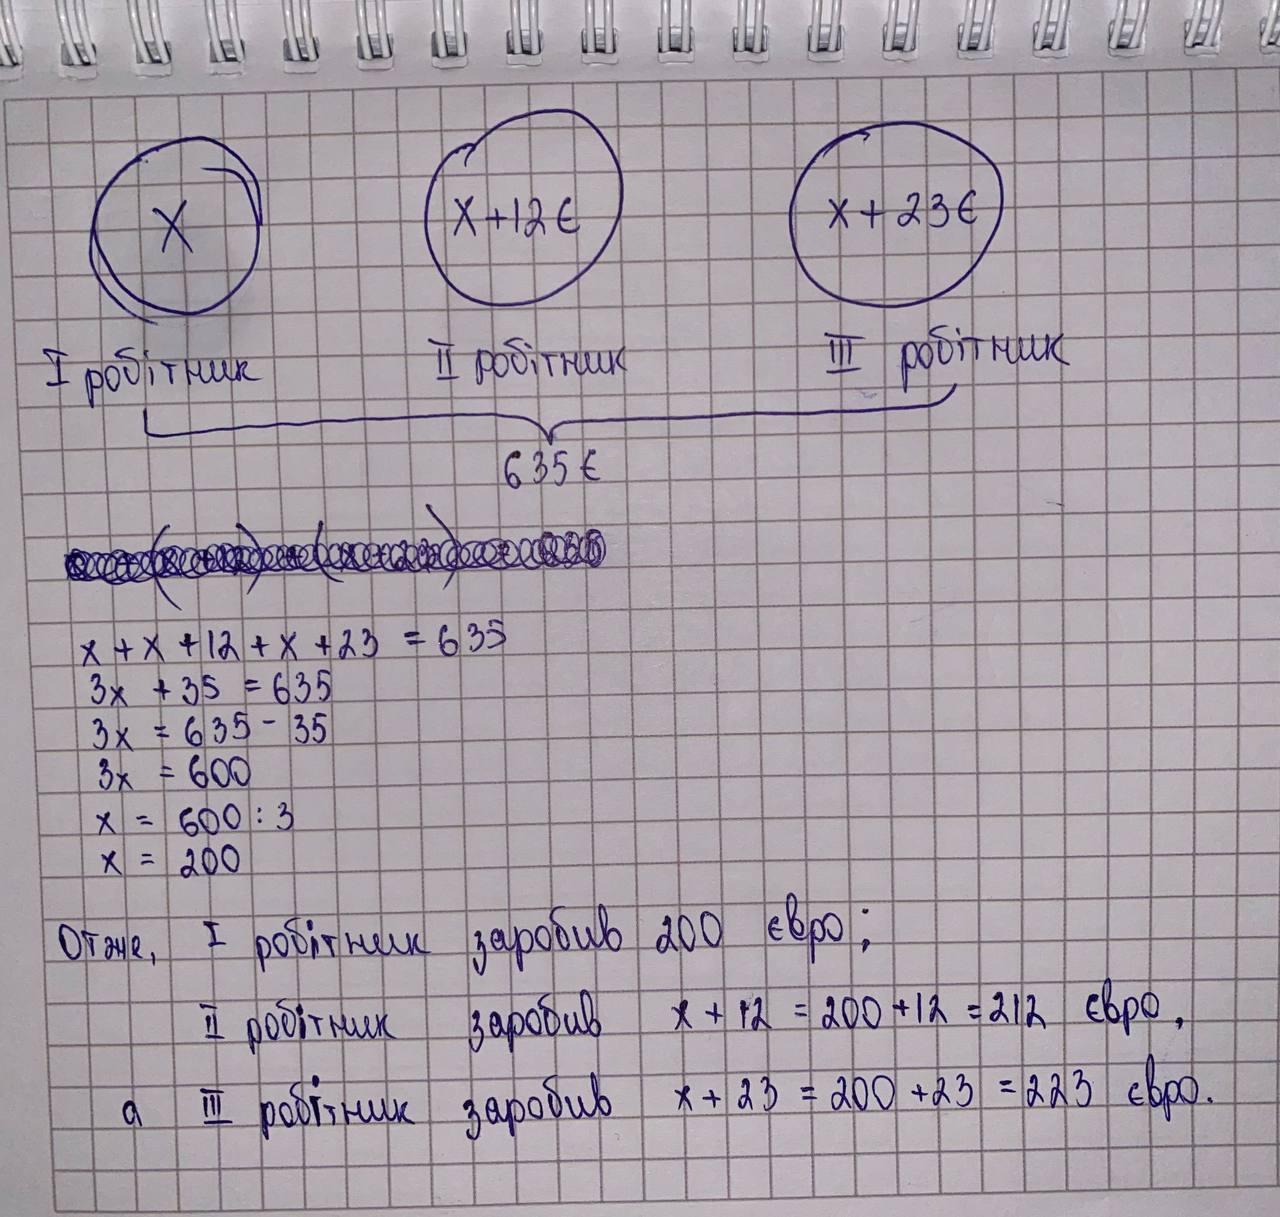 x
x+12€
x+23€
I робітник
II робітник
III робітник
635€
x + x + 12 + x + 23 = 635
3x + 35 = 635
3x = 635 - 35
3x = 600
x = 600 : 3
x = 200
Отже, I робітник заробив 200 євро;
II робітник заробив x + 12 = 200 + 12 = 212 євро,
а III робітник заробив x + 23 = 200 + 23 = 223 євро.